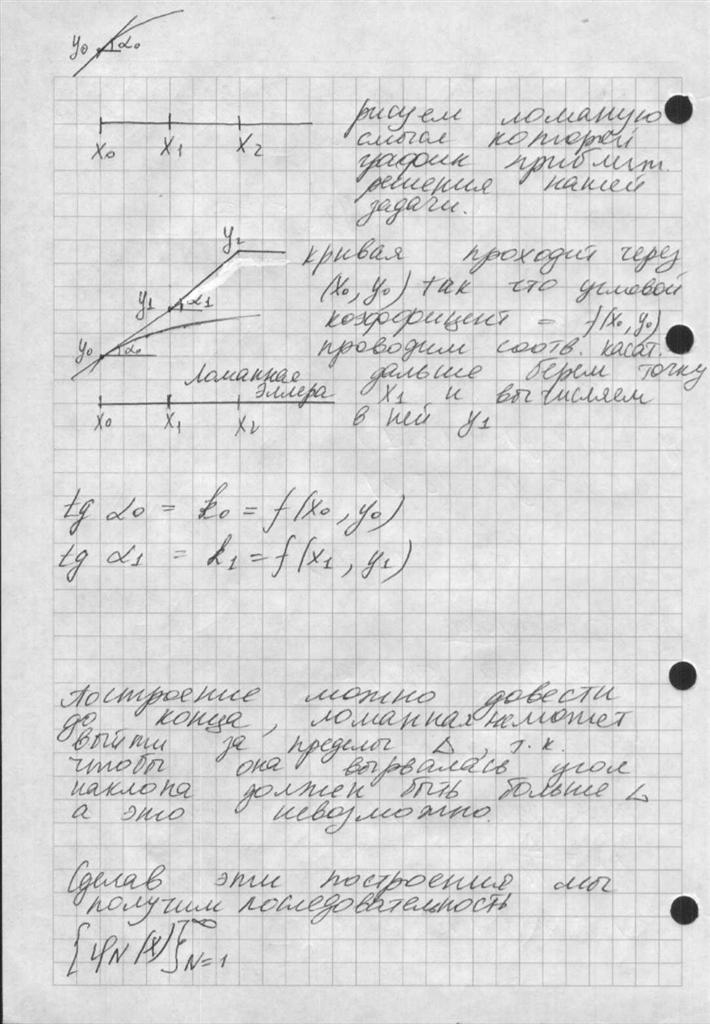 y₀ α₀
x₀ x₁ x₂
рисуем ломаную
смысл которой
график приближ.
решения нашей
задачи.
y₂
y₁ α₁
y₀ α₀
кривая проходит через
(x₀, y₀) так что угловой
коэффициент = f(x₀, y₀)
проводим соотв. касат.
дальше берем точку
x₁ и вычисляем
в ней y₁
Ломанная
Эйлера
x₀ x₁ x₂
tg α₀ = k₀ = f(x₀, y₀)
tg α₁ = k₁ = f(x₁, y₁)
Построение можно довести
до конца, ломанная не может
выйти за пределы Δ, т.к.
чтобы она вырвалась угол
наклона должен быть больше Δ
а это невозможно.
Сделав эти построения мы
получим последовательность
{φ_N(x)}_{N=1}^∞